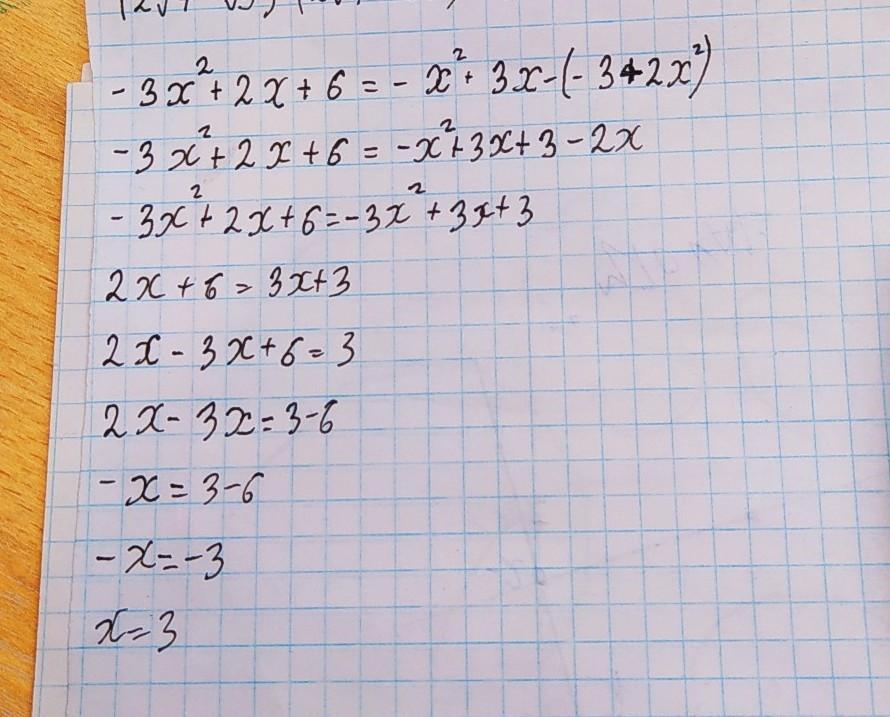 -3x²+2x+6=-x²+3x-(-3+2x²)
-3x²+2x+6=-x²+3x+3-2x
-3x²+2x+6=-3x²+3x+3
2x+6=3x+3
2x-3x+6=3
2x-3x=3-6
-x=3-6
-x=-3
x=3